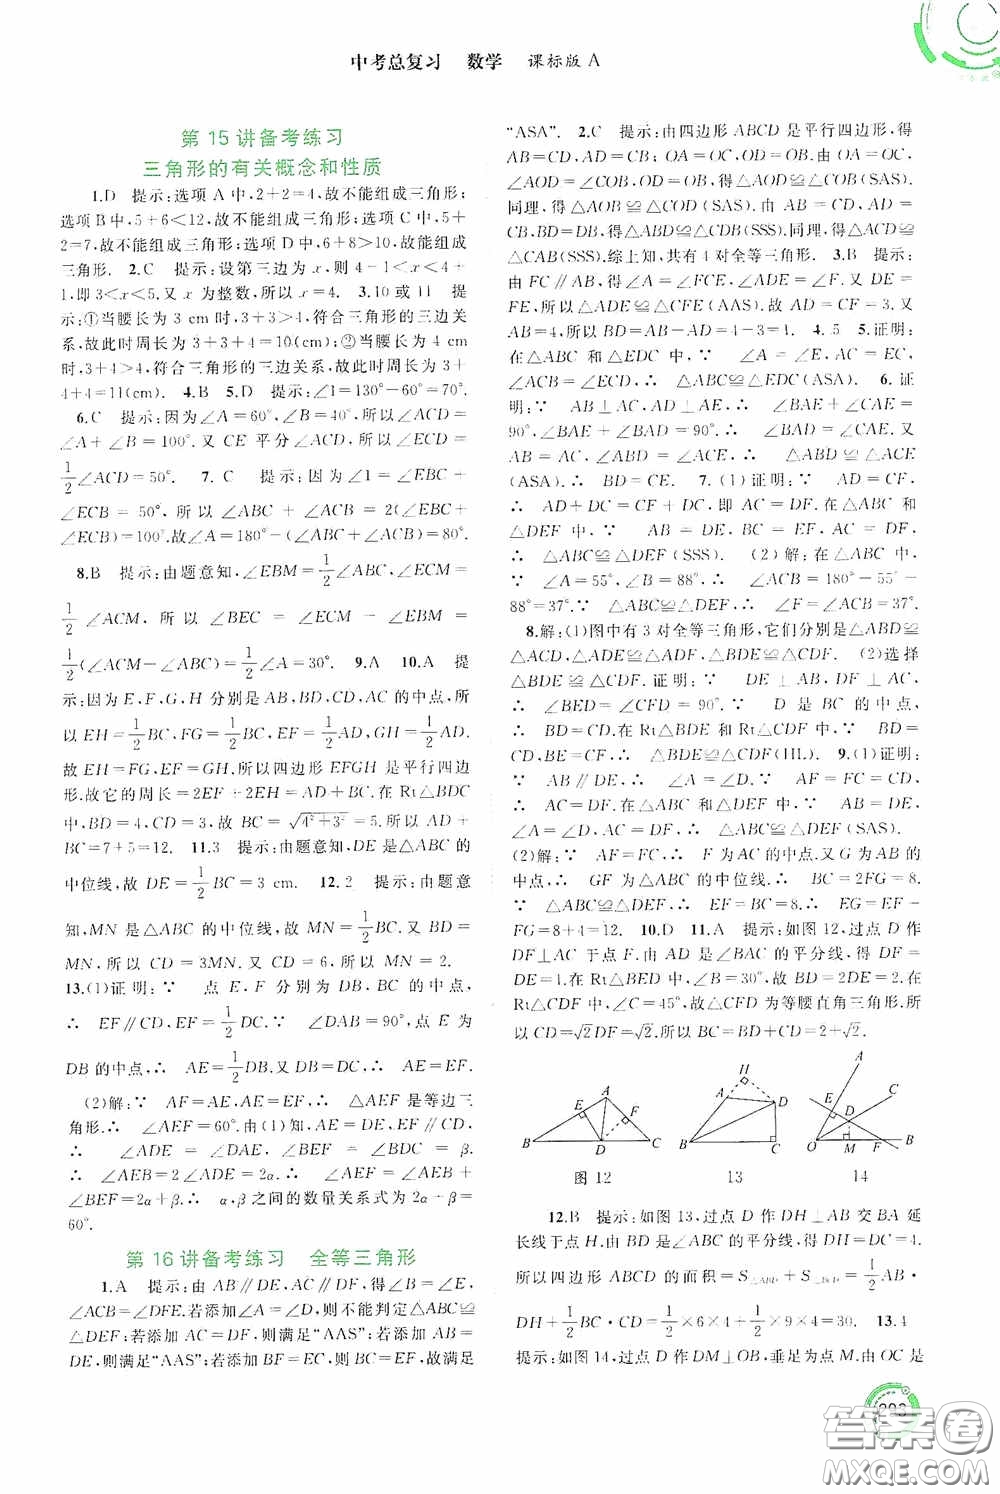 中考总复习 数学 课标版 A
第 15 讲备考练习
三角形的有关概念和性质
1.D 提示:选项 A 中,2+2=4,故不能组成三角形;
选项 B 中,5+6<12,故不能组成三角形;选项 C 中,5+
2=7,故不能组成三角形;选项 D 中,6+8>10,故能组成
三角形. 2.C 提示:设第三边为 x,则 4-1<x<4+
1,即 3<x<5.又 x 为整数,所以 x=4. 3.10 或 11 提
示:①当腰长为 3 cm 时,3+3>4,符合三角形的三边关
系,故此时周长为 3+3+4=10(cm);②当腰长为 4 cm
时,3+4>4,符合三角形的三边关系,故此时周长为 3+
4+4=11(cm). 4.B 5.D 提示:∠1=130°-60°=70°.
6.C 提示:因为∠A=60°,∠B=40°,所以∠ACD=
∠A+∠B=100°.又 CE 平分∠ACD,所以∠ECD=
1/2∠ACD=50°. 7.C 提示:因为∠1=∠EBC+
∠ECB = 50°, 所以∠ABC + ∠ACB = 2(∠EBC+
∠ECB)=100°.故∠A=180°-(∠ABC+∠ACB)=80°.
8.B 提示:由题意知,∠EBM=1/2∠ABC,∠ECM=
1/2∠ACM, 所以∠BEC = ∠ECM - ∠EBM =
1/2(∠ACM-∠ABC)=1/2∠A=30°. 9.A 10.A 提
示:因为 E,F,G,H 分别是 AB,BD,CD,AC 的中点,所
以 EH=1/2BC,FG=1/2BC,EF=1/2AD,GH=1/2AD.
故 EH=FG,EF=GH,所以四边形 EFGH 是平行四边
形.故它的周长=2EF+2EH=AD+BC.在 Rt△BDC
中,BD=4,CD=3,故 BC=√4²+3²=5.所以 AD+
BC=7+5=12. 11.3 提示:由题意知,DE 是△ABC 的
中位线,故 DE=1/2BC=3 cm. 12.2 提示:由题意
知,MN 是△ABC 的中位线,故 MN=1/2BC.又 BD=
MN,所以 CD=3MN.又 CD=6,所以 MN=2.
13.(1)证明:∵ 点 E,F 分别为 DB,BC 的中点,
∴ EF∥CD,EF=1/2DC.∵ ∠DAB=90°,点 E 为
DB 的中点,∴ AE=1/2DB.又 DB=DC,∴ AE=EF.
(2)解:∵ AF=AE,AE=EF,∴ △AEF 是等边三
角形.∴ ∠AEF=60°.由(1)知,AE=DE,EF∥CD,
∴ ∠ADE = ∠DAE = α, ∠BEF = ∠BDC = β.
∴ ∠AEB=2∠ADE=2α.∵ ∠AEF=∠AEB+
∠BEF=2α+β,∴ α,β 之间的数量关系式为 2α+β=
60°.
第 16 讲备考练习 全等三角形
1.A 提示:由 AB∥DE,AC∥DF,得∠B=∠E,
∠ACB=∠DFE.若添加∠A=∠D,则不能判定△ABC≌
△DEF;若添加 AC=DF,则满足“AAS”;若添加 AB=
DE,则满足“AAS”;若添加 BF=EC,则 BC=FE,故满足
“ASA”. 2.C 提示:由四边形 ABCD 是平行四边形,得
AB=CD,AD=CB,OA=OC,OD=OB.由 OA=OC,
∠AOD = ∠COB, OD = OB, 得△AOD≌△COB(SAS).
同理,得△AOB≌△COD(SAS).由 AD=CB,AB=
CD,BD=DB,得△ABD≌△CDB(SSS).同理,得△ACD≌
△CAB(SSS).综上知,共有 4 对全等三角形. 3.B 提示:
由 FC∥AB,得∠A=∠FCE,∠ADE=∠F.又 DE=
FE,所以△ADE≌△CFE(AAS).故 AD=CF=3.又
AB=4,所以 BD=AB-AD=4-3=1. 4.5 5.证明:
在△ABC 和△EDC 中,∵ ∠A=∠E,AC=EC,
∠ACB=∠ECD,∴ △ABC≌△EDC(ASA). 6.证
明:∵ AB⊥AC,AD⊥AE,∴ ∠BAE+∠CAE=
90°,∠BAE+∠BAD=90°.∴ ∠BAD=∠CAE.又
AB=AC,∠ABD=∠ACE,∴ △ABD≌△ACE
(ASA).∴ BD=CE. 7.(1)证明:∵ AD=CF,
∴ AD+DC=CF+DC,即 AC=DF.在△ABC 和
△DEF 中,∵ AB=DE,BC=EF,AC=DF,
∴ △ABC≌△DEF(SSS). (2)解:在△ABC 中,
∵ ∠A=55°,∠B=88°,∴ ∠ACB=180°-55°-
88°=37°.∵ △ABC≌△DEF,∴ ∠F=∠ACB=37°.
8.解:(1)图中有 3 对全等三角形,它们分别是△ABD≌
△ACD,△ADE≌△ADF,△BDE≌△CDF. (2)选择
△BDE≌△CDF.证明:∵ DE⊥AB,DF⊥AC,
∴ ∠BED=∠CFD=90°.∵ D 是 BC 的中点,
∴ BD=CD.在 Rt△BDE 和 Rt△CDF 中,∵ BD=
CD,BE=CF,∴ △BDE≌△CDF(HL). 9.(1)证明:
∵ AB∥DE,∴ ∠A=∠D.∵ AF=CD,
∴ AC=DF.在△ABC 和△DEF 中,∵ AB=DE,
∠A=∠D,AC=DF,∴ △ABC≌△DEF(SAS).
(2)解:∵ AF=FC,∴ F 为 AC 的中点.又 G 为 AB 的
中点,∴ GF 为△ABC 的中位线.∴ BC=2FG=8.
∵ △ABC≌△DEF,∴ EF=BC=8.∴ EG=EF-
FG=8+4=12. 10.D 11.A 提示:如图 12,过点 D 作
DF⊥AC 于点 F.由 AD 是∠BAC 的平分线,得 DF=
DE=1.在 Rt△BED 中,∠B=30°,故 BD=2DE=2.在
Rt△CDF 中,∠C=45°,故△CFD 为等腰直角三角形.所
以 CD=√2DF=√2.所以 BC=BD+CD=2+√2.
A E F B D C
H A D B C
A E D C O M F B
图 12 13 14
12.B 提示:如图 13,过点 D 作 DH⊥AB 交 BA 延
长线于点 H.由 BD 是∠ABC 的平分线,得 DH=DC=4.
所以四边形 ABCD 的面积=S△ABD+S△BCD=1/2AB·
DH+1/2BC·CD=1/2×6×4+1/2×9×4=30. 13.4
提示:如图 14,过点 D 作 DM⊥OB,垂足为点 M.由 OC 是
答案卷
MXQE.COM